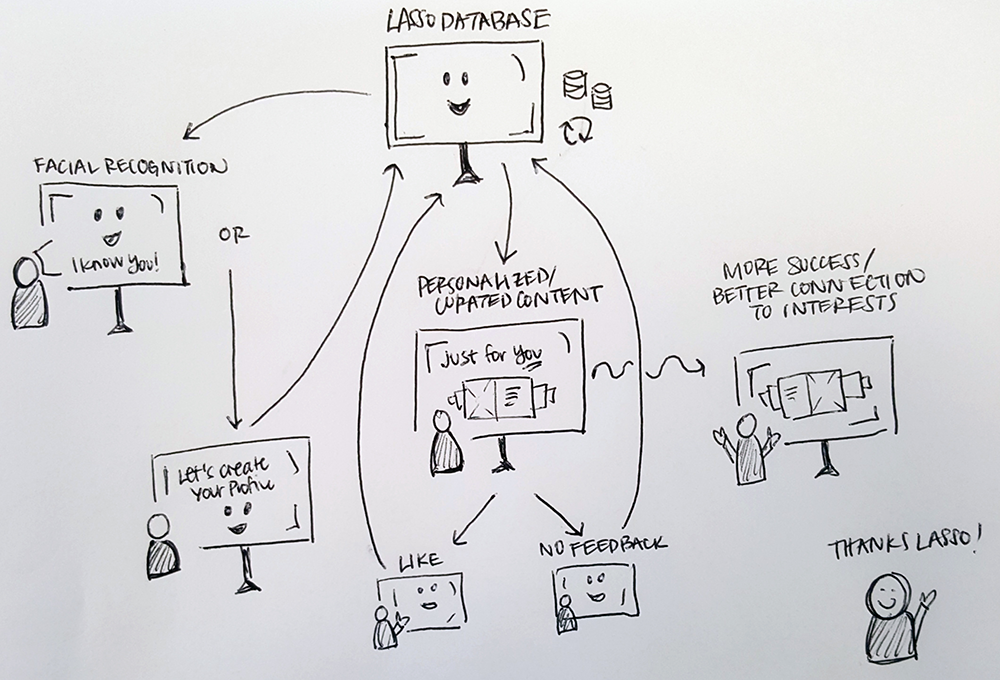 LASSO DATABASE
FACIAL RECOGNITION
I know you!
OR
PERSONALIZED/
CURATED CONTENT
just for you
MORE SUCCESS/
BETTER CONNECTION
TO INTERESTS
Let's create
your Profile
LIKE
NO FEEDBACK
THANKS LASSO!